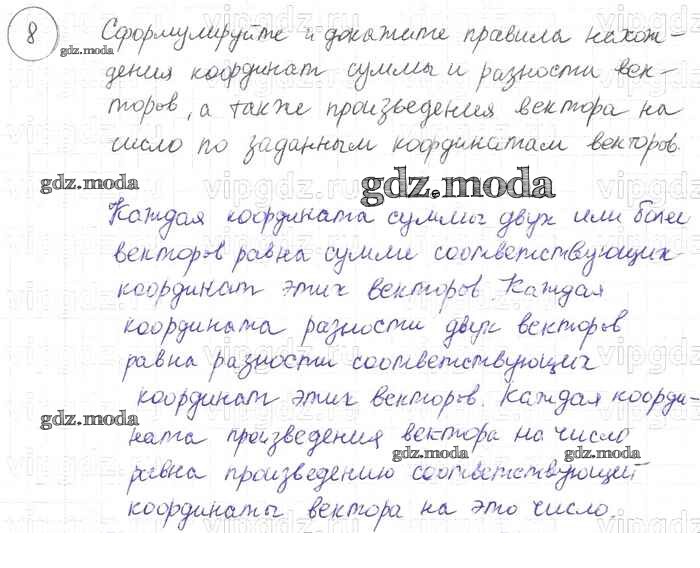 8 Сформулируйте и докажите правила нахож-
gdz.moda
дения координат суммы и разности век-
торов, а также произведения вектора на
число по заданным координатам векторов.
gdz.moda
gdz.moda
Каждая координата суммы двух или более
векторов равна сумме соответствующих
координат этих векторов. Каждая
координата разности двух векторов
равна разности соответствующих
координат этих векторов. Каждая коорди-
gdz.moda
ната произведения вектора на число
gdz.moda gdz.moda gdz.moda
равна произведению соответствующей
координаты вектора на это число.